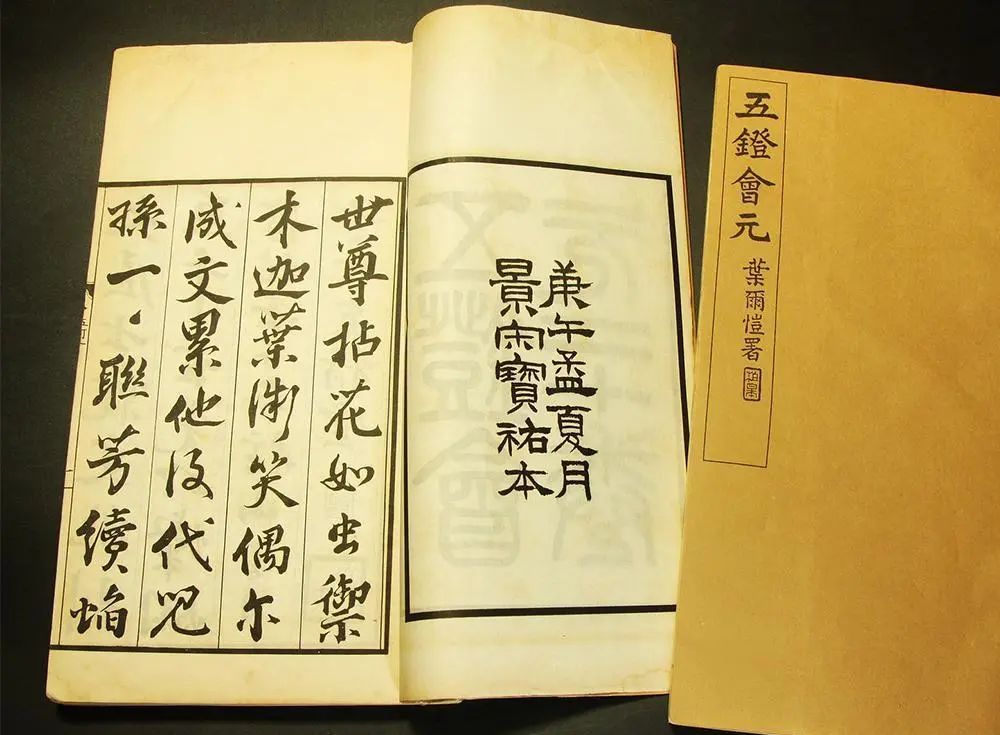 五鐙會元
葉爾愷署
庚午孟夏月
景宋寶祐本
世尊拈花如虫禦
木迦葉微笑偶尔
成文累他後代兒
孫一、聯芳續焰